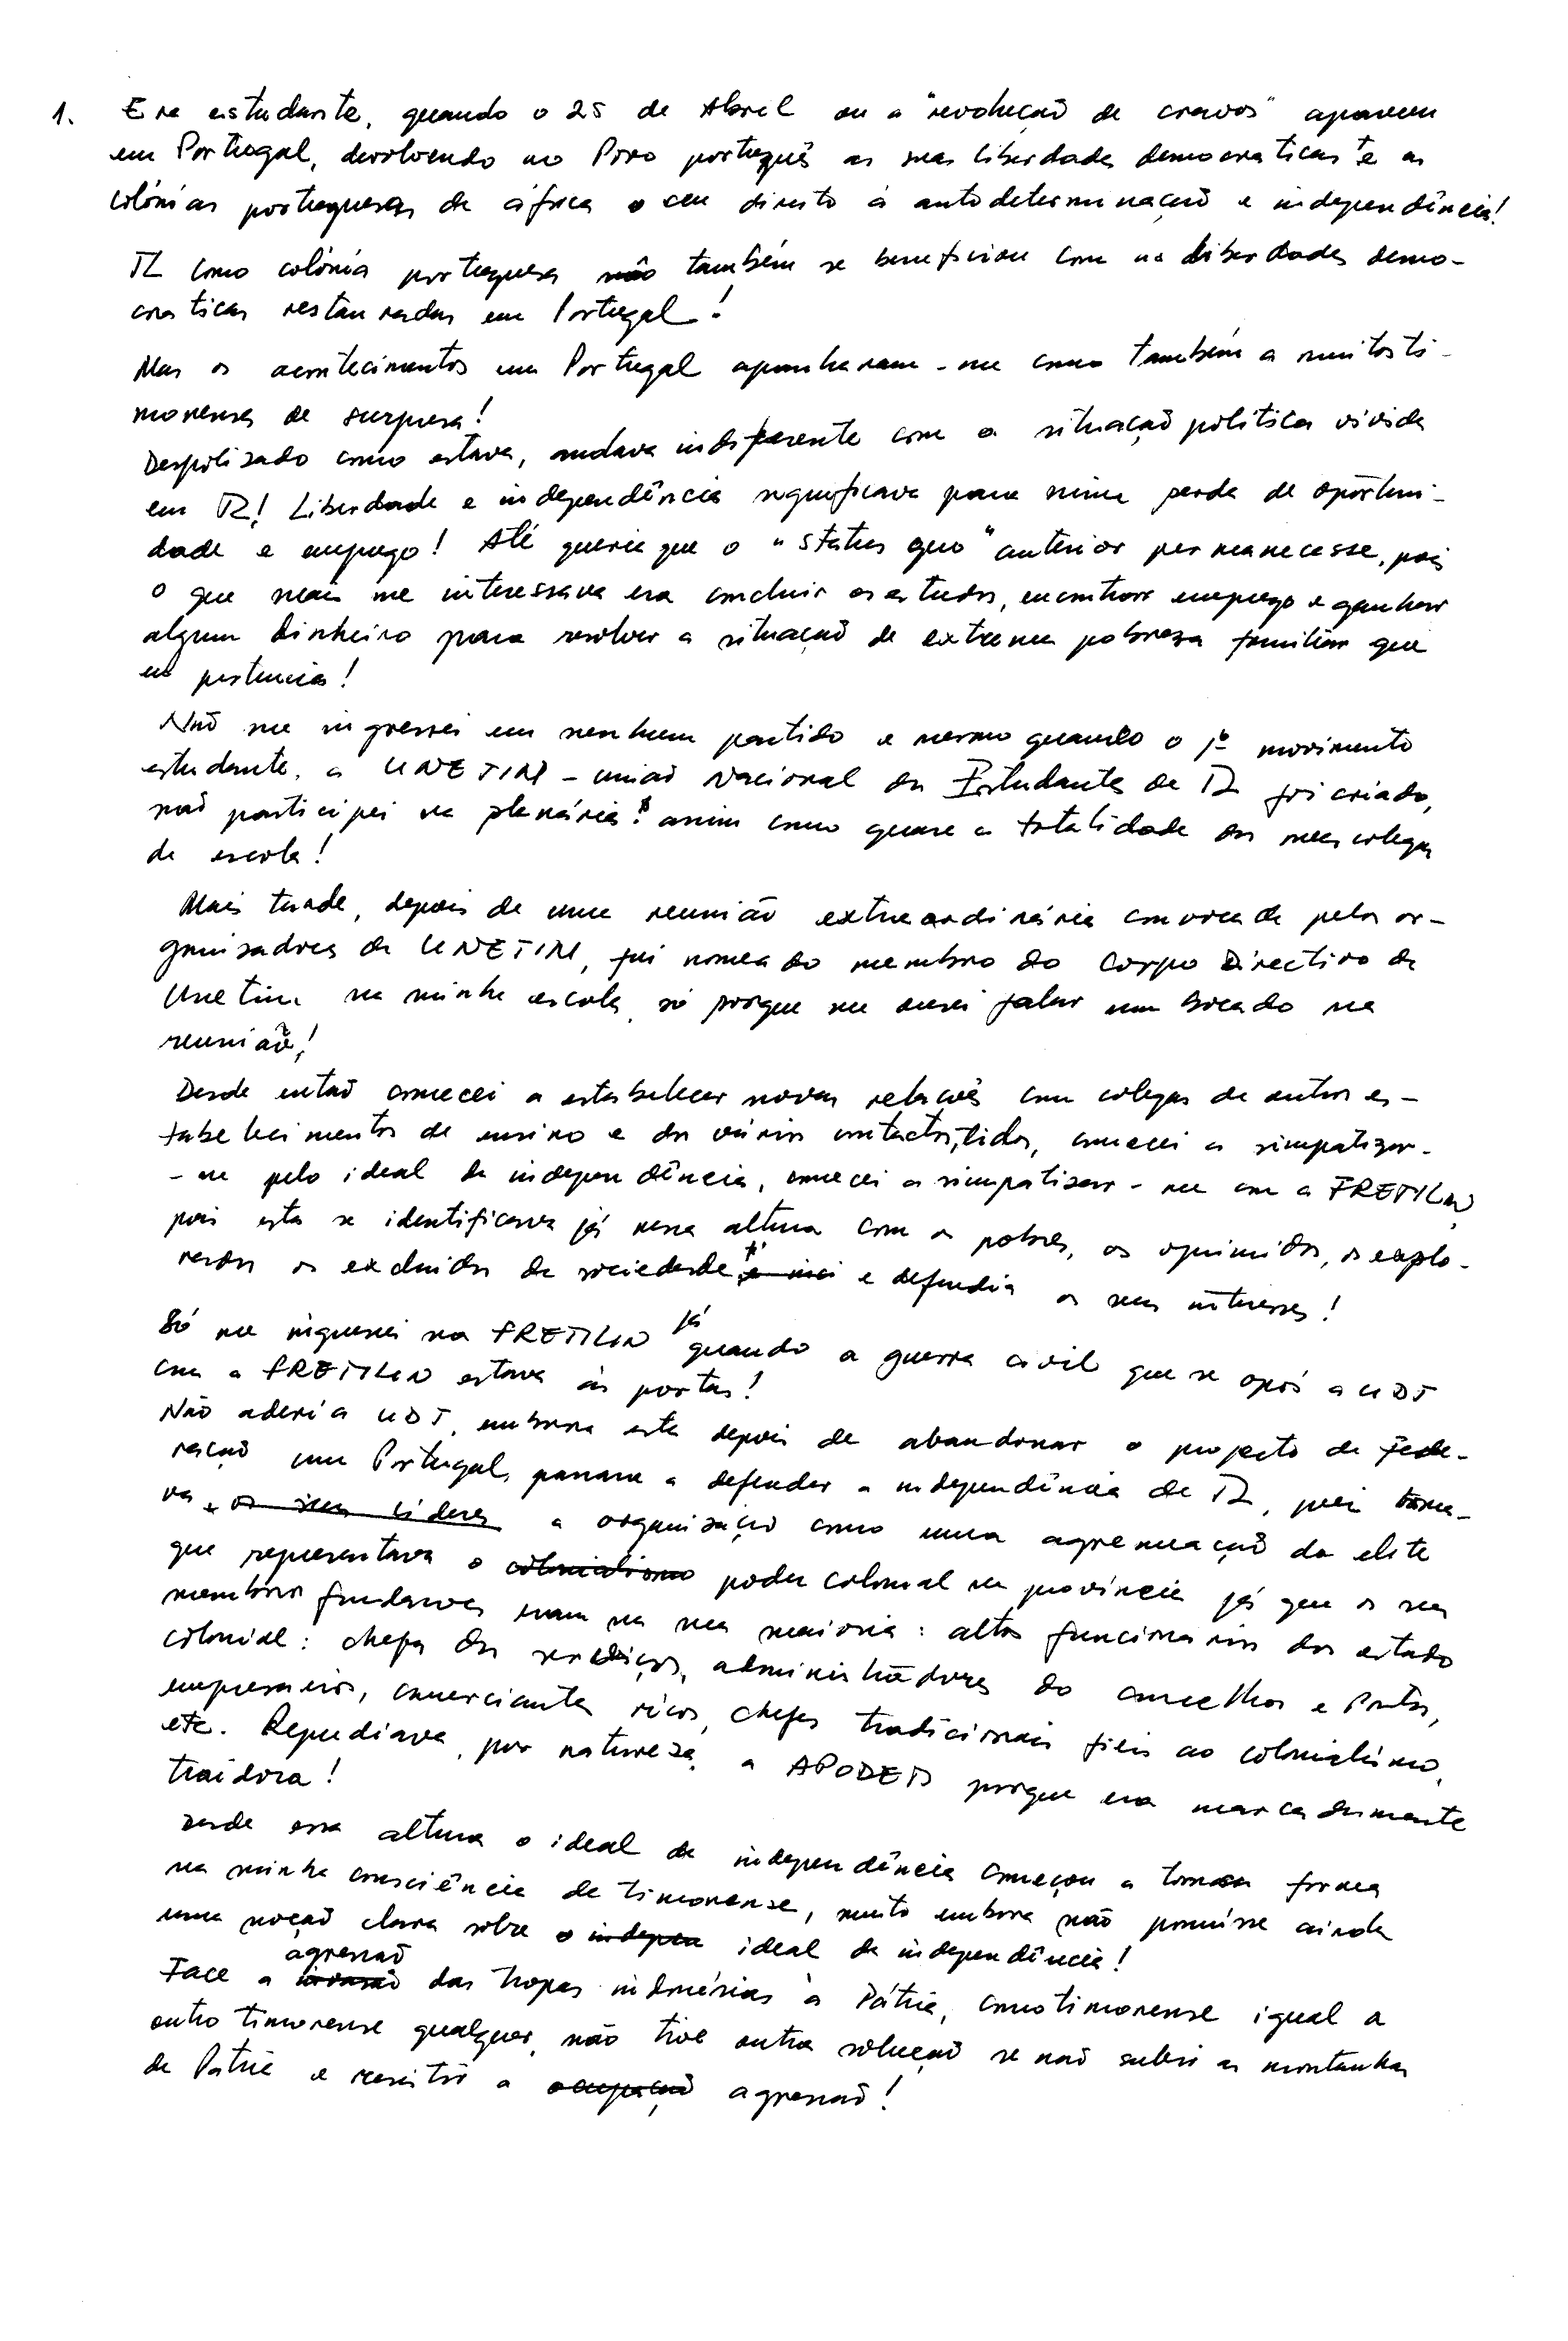 1. Era estudante, quando o 25 de Abril ou a "revolução de cravos" apareceu
em Portugal, devolvendo ao Povo português as suas liberdades democraticas e as
colónias portuguesas de áfrica o seu direito á autodeterminação e independência!
TL como colónia portuguesa não também se beneficiou com as liberdades demo-
craticas restauradas em Portugal!
Mas os acontecimentos em Portugal apanharam-me como também a muitos ti-
morenses de surpresa!
Despolisado como estava, andava indiferente com a situação politica vivida
em TL! Liberdade e independência significava para mim perda de oportuni-
dade e emprego! Até queria que o "status quo" anterior permanecesse, pois
o que mais me interessava era concluir os estudos, encontrar emprego e ganhar
algum dinheiro para resolver a situação de extrema pobreza familiar que
eu pertencia!
Não me ingressei em nenhum partido e mesmo quando o 1º movimento
estudante, a UNETIM - união Nacional dos Estudantes de TL foi criado,
não participei na plenária! assim como quase a totalidade dos meus colegas
de escola!
Mais tarde, depois de uma reunião extraordinária convocada pelos or-
ganisadores da UNETIM, fui nomeado membro do Corpo Directivo da
Unetim na minha escola, só porque me ousei falar um bocado na
reunião!
Desde então comecei a estabelecer novas relações com colegas de outros es-
tabelecimentos de ensino e dos vários contactos tidos, comecei a simpatizar-
-me pelo ideal da independência, comecei a simpatisar-me com a FRETILIN,
pois esta se identificava já nessa altura com os pobres, os oprimidos, os explo-
rados os excluidos da sociedade e defendia os seus interesses!
Só me ingressei na FRETILIN já quando a guerra civil que se opôs a UDT
com a FRETILIN estava às portas!
Não aderi a UDT, embora esta depois de abandonar o projecto de fede-
ração com Portugal, passara a defender a independência de TL, pois toma-
va os seus lideres a organização como uma agremiação da elite
que representava o colonialismo poder colonial na provincia já que os seus
membros fundadores eram na sua maioria: altos funcionarios dos estado
colonial: chefes dos serviços, administradores do concelhos e Postos,
empresarios, comerciantes ricos, chefes tradicionais fieis ao colonialismo,
etc. Repudiava, por natureza, a APODETI porque era marcadamente
traidora!
Desde essa altura o ideal da independência começou a tomar forma
na minha consciência de timorense, muito embora não possuisse ainda
uma noção clara sobre o indepen ideal da independência!
Face a invasão agressão das tropas indonésias à Pátria, como timorense igual a
outro timorense qualquer, não tive outra solução se não subir as montanhas
da Pátria e resistir a ocupação agressão!